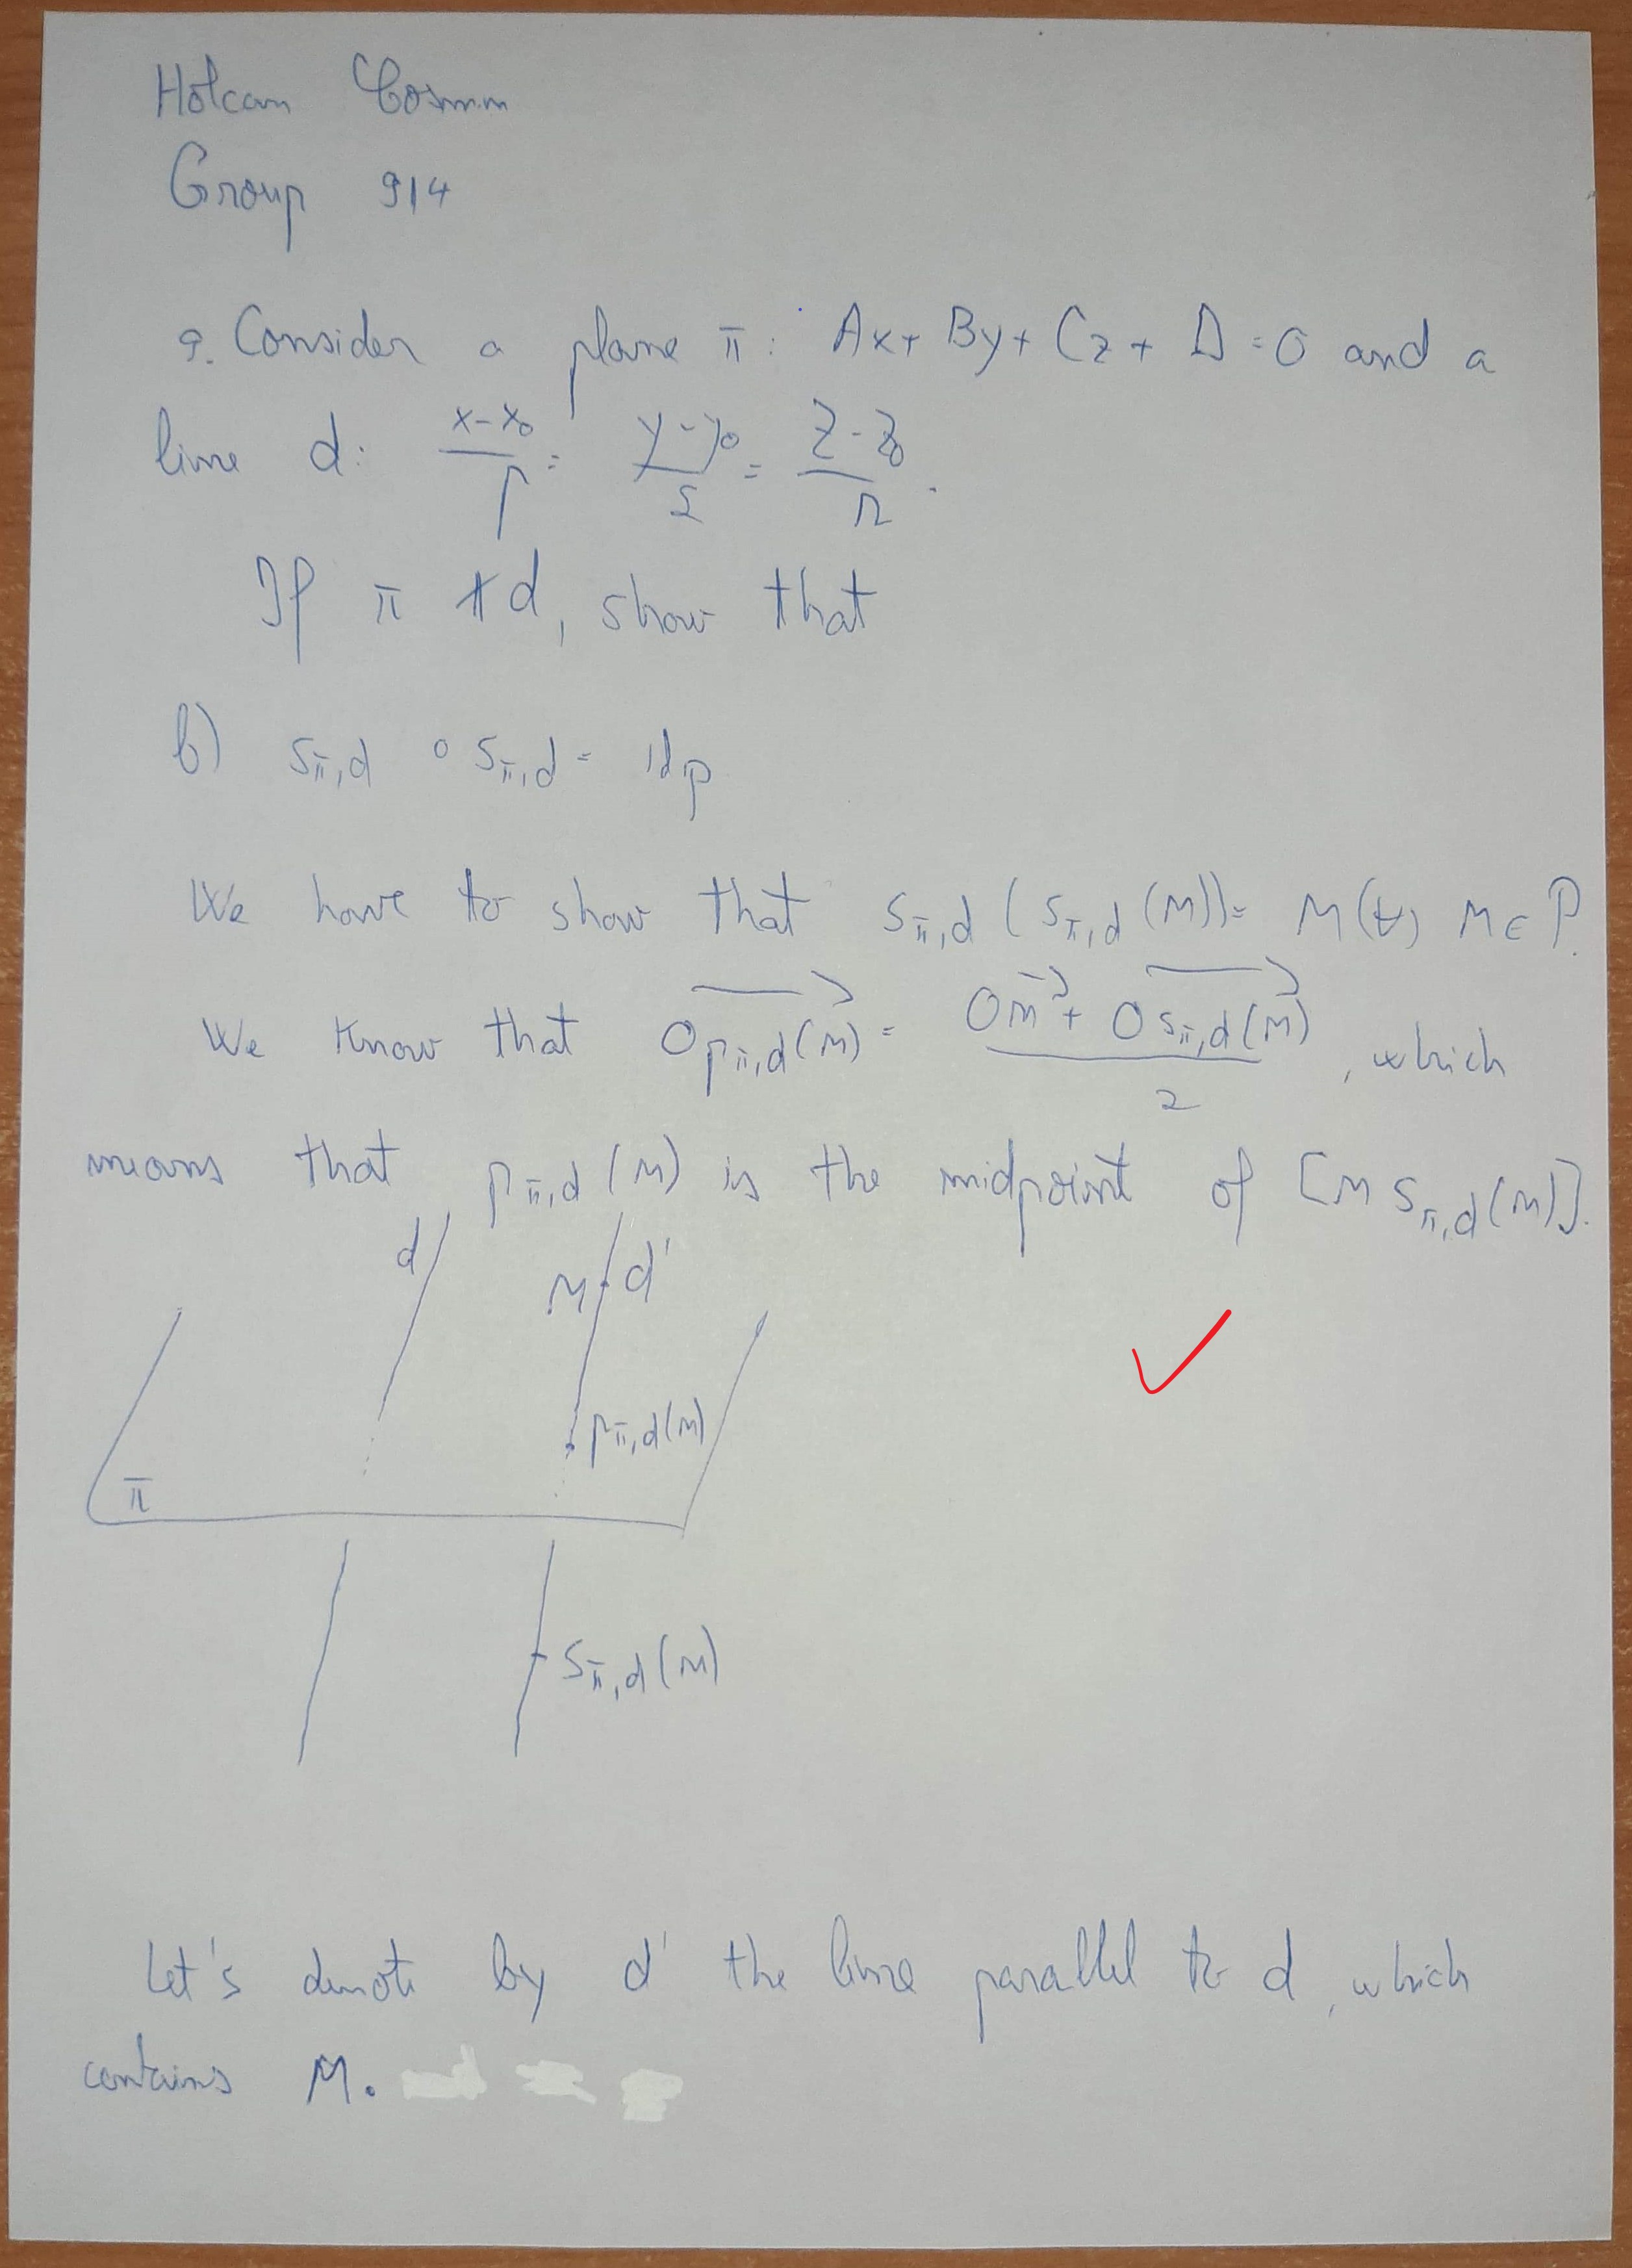 Group 914
9. Consider a plane π: Ax + By + Cz + D = 0 and a
line d: (x-x₀)/p = (y-y₀)/q = (z-z₀)/r.
If π ∦ d, show that
b) s_π,d ∘ s_π,d = id_P
We have to show that s_π,d (s_π,d (M)) = M (∀) M ∈ P.
We know that Op_π,d(M)→ = (OM→ + Os_π,d(M)→)/2, which
means that p_π,d (M) is the midpoint of [M s_π,d (M)].
d
M d'
p_π,d(M)
π
s_π,d(M)
Let's denote by d' the line parallel to d, which
contains M.